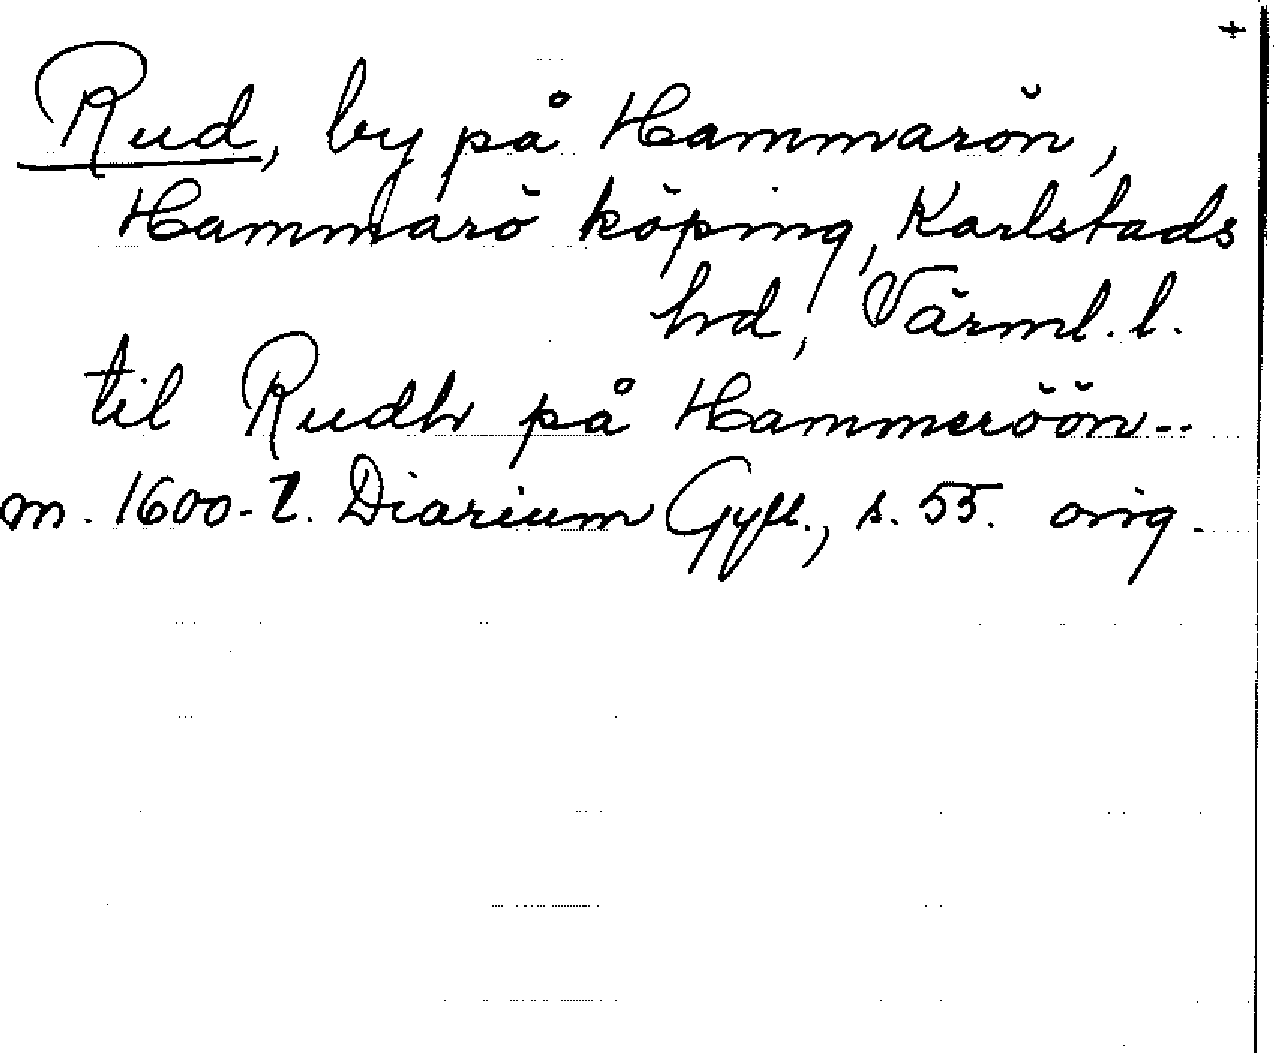 +
Rud, by på Hammarön,
Hammarö köping, Karlstads
hd, Värml. l.
til Rudh på Hammeröön--
m. 1600-t. Diarium Gyll., s. 55. orig.